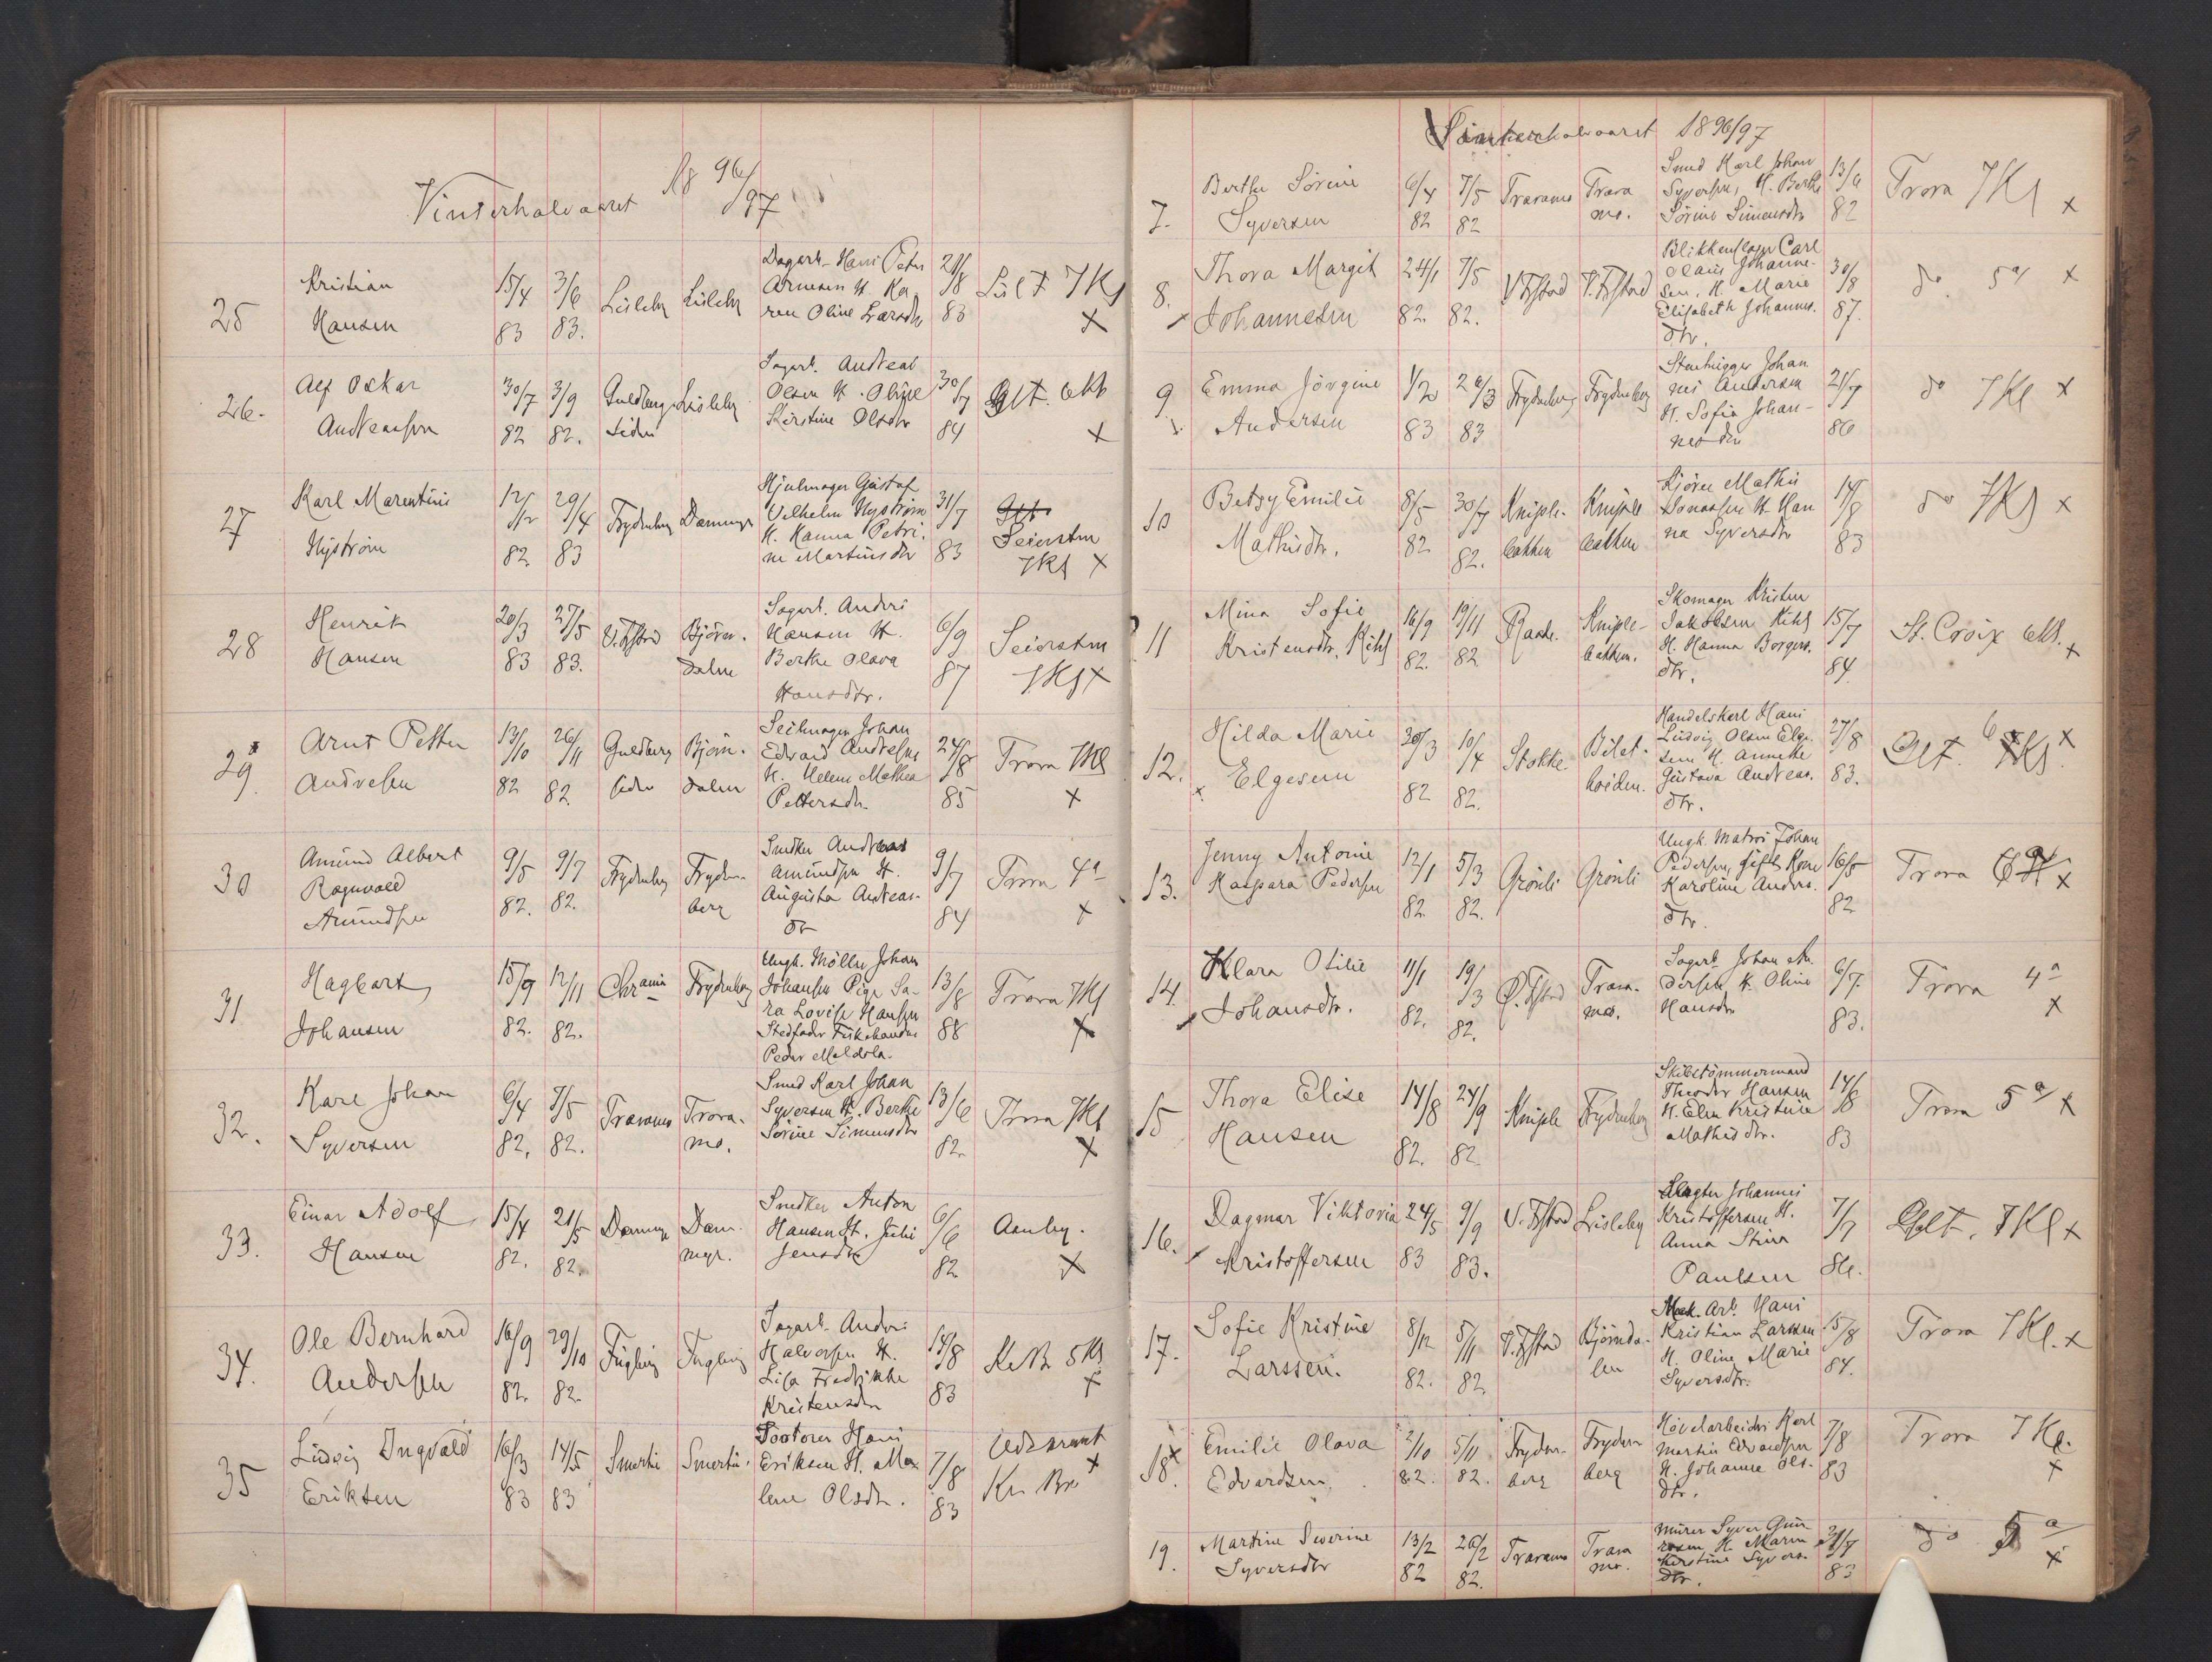 Vinterhalvaaret 18 96/97
25 Kristian Hansen 15/4 83 3/6 83. Lisleby Lisleby
Dagarb. Hans Peter
Arnesen H. Ka-
ren Oline Larsdtr
21/8 83 Lisl 7 Kl x
26. Alf Oskar Andreassen 30/7 82 3/9 82. Guldbergsiden Lisleby
Sagarb. Andreas
Olsen H.
Kirstine Olsdtr
30/7 84 Glt. x
27 Karl Marentius Nyström 12/12 82 29/4 83 Frydenberg Dammyr
Hjulmager Gustaf
Vilhelm Nyström
H. Hanna Petri-
ne Martinsdtr
31/7 83 Seiersten 7 Kl x
28 Henrik Hansen 20/3 83 27/5 83. V. Fstad Björn-dalen
Sagarb. Anders
Hansen H.
Berthe Olava
Hansdtr.
6/9 87 Seiersten 7 Kl x
29. Arnt Petter Andresen 13/10 82 26/11 82 Guldbergsiden Björn-dalen
Seilmager Johan
Edvard Andresen
H. Helene Mathea
Pettersdtr.
24/8 85 Trara 7 Kl x
30 Amund Albert Ragnvald Amundsen 9/5 82. 9/7 82. Frydenberg Fryden-berg
Snedker Andreas
Amundsen H.
Augusta Andreas-
dtr
9/7 84 Trara 4a x
31 Hagbart Johansen 15/9 82. 12/11 82. Chrania Frydenberg
Ungk. Möller Johan
Johansen Pige Sa-
ra Lovise Hansen
Stedfader Fiskehandler
Peder
13/8 88 Trara 7 Kl x
32. Karl Johan Syversen 6/4 82, 7/5 82. Traramo Trara-mo.
Smed Karl Johan
Syversen H. Berthe
Sörine Simensdtr
13/6 82. Trara 7 Kl x
33. Einar Adolf Hansen 15/4 82, 21/5 82. Dammyr Dam-myr.
Snedker Anton
Hansen H. Julie
Jensdtr
6/6 82 Aaleby. x
34. Ole Bernhard Andersen 16/9 82. 29/10 82. Fuglevig Fuglevig
Sagarb. Anders
Halvorsen H.
Lisa Fredrikke
Kristensdtr
14/8 83 Kn Br 5 Kl x
35 Ludvig Ingvald Eriksen 16/3 83 14/5 83 Smertu Smertu.
Hans
Eriksen H. Ma-
lene Olsdtr.
7/8 83 Kn Br x
Vinterhalvaaret 1896/97
7. Berthe Sörine Syversen 6/4 82 7/5 82 Traramo Trara mo.
Smed Karl Johan
Syversen, H. Berthe
Sörine Simensdtr
13/6 82 Trara 7 Kl x
8. Thora Margit Johannesen 24/1 82. 7/5 82. V. Fstad V. Fstad
Blikkenslager Carl
Olaus Johanne-
sen, H. Marie
Elisabeth Johannes-
dtr.
30/8 87. do 5a x
9 Emma Jörgine Andersen 1/12 83 26/3 83 Frydenberg Frydenberg
Stenhugger Johan
nes Andersen
H. Sofie Johan-
nesdtr
21/7 86 do 7 Kl x
10 Betsy Emilie Mathisdtr. 8/5 82 30/7 82. Kniple-bakken Kniple bakken
Kjörer Mathis
Jonassen H. Han
na Syversdtr
14/8 83 do 7 Kl x
11 Mina Sofie Kristensdtr. Kihl 16/9 82. 19/11 82 Raade. Kniple-bakken.
Skomager Kristen
Jakobsen Kihl
H. Hanna Borgers-
dtr.
15/7 84 St. Croix 6 Kl. x
12. Hilda Marie Elgesem 30/3 82 10/4 82. Stokke. Bilet-höiden.
Handelskarl Hans
Ludvig Olsen Elge-
sem H. Annette
Gustava Andreas-
dtr.
27/8 83. Glt. 6 Kl. x
13. Jenny Antonie Kaspara Pedersen 12/1 82. 5/3 82. Grönli Grönli
Ungk. Matros Johan
Pedersen, gift Kone
Karoline Anders-
dtr.
16/5 82 Trara x
14. Klara Otilie Johansdtr. 11/1 82. 19/3 82. Ø. Fstad Trara-mo.
Sagarb. Johan An-
dersen H. Oline
Hansdtr
6/7. 83. Trara 4a x
15 Thora Elise Hansen 14/8 82. 24/9 82 Kniple Frydenberg
Skibstömmermand
Theodor Hansen
H. Elen Kristine
Mathisdtr.
14/8 83 Trara 5a x
16. Dagmar Viktoria Kristoffersen 24/5 83 9/9 83. V. Fstad Lisleby
Slagter Johannes
Kristoffersen H.
Anna Stina
Paulsen
7/7 86. Glt. 7 Kl x
17. Sofie Kristine Larssen. 8/12 82. 5/11 82. V. Fstad Björnda-len
Mek. Arb. Hans
Kristian Larssen
H. Oline Marie
Syversdtr.
15/8 84. Trara 7 Kl. x
18. Emilie Olava Edvardsen. 2/10 82. 5/11 82. Fryden-berg Fryden berg
Hövelarbeider Karl
Martin Edvardsen
H. Johanne Ols-
dtr.
7/8 83 Trara 7 Kl. x
19. Martine Severine Syversdtr 13/2 82 26/2 82. Traramo Trara mo.
Murer Syver Gun-
rosen H. Maren
Kirstine Syvers-
dtr.
31/7 83 do 5a x